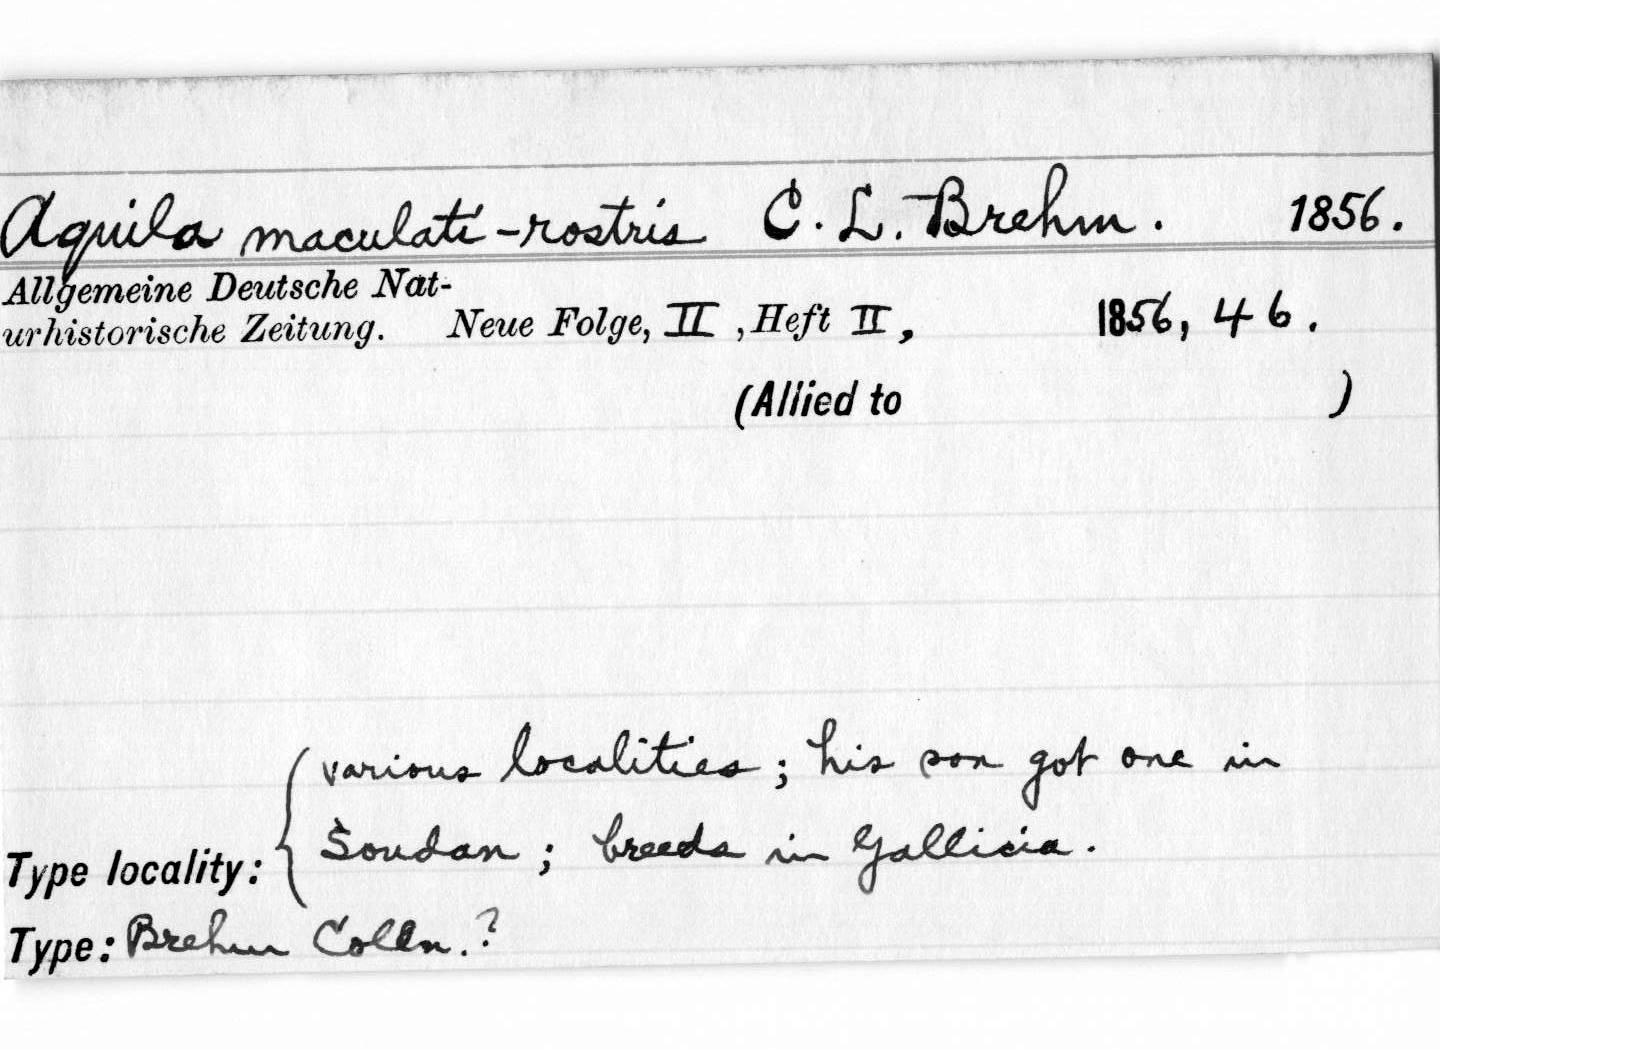 Aquila maculati-rostris C. L. Brehm. 1856.
Allgemeine Deutsche Nat-
urhistorische Zeitung. Neue Folge, II, Heft II, 1856, 46.
(Allied to )
various localities; his son got one in
Type locality: { Soudan; breeds in Gallicia.
Type: Brehm Colln.?